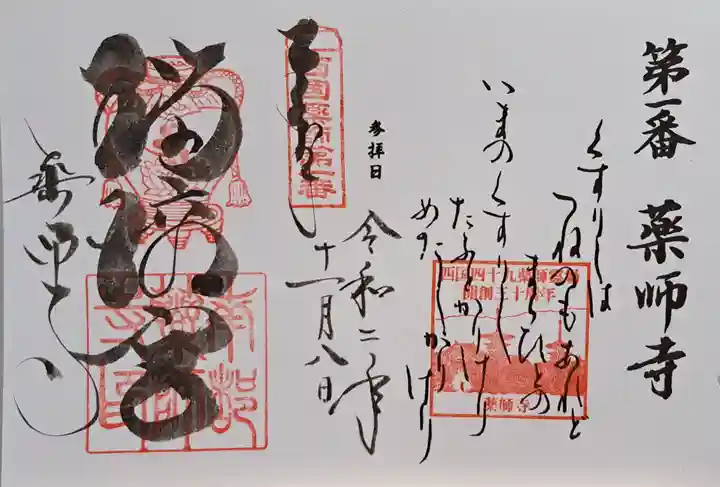 第一番 薬師寺
くすりしは
つねのもあれど
まらひとの
いまのくすりし
たふとかりけり
めだしかりけり
西国四十九薬師霊場
開創三十周年
薬師寺
参拝日
令和二年
十一月八日
奉拝
西国薬師第一番
瑠璃宮
薬師寺